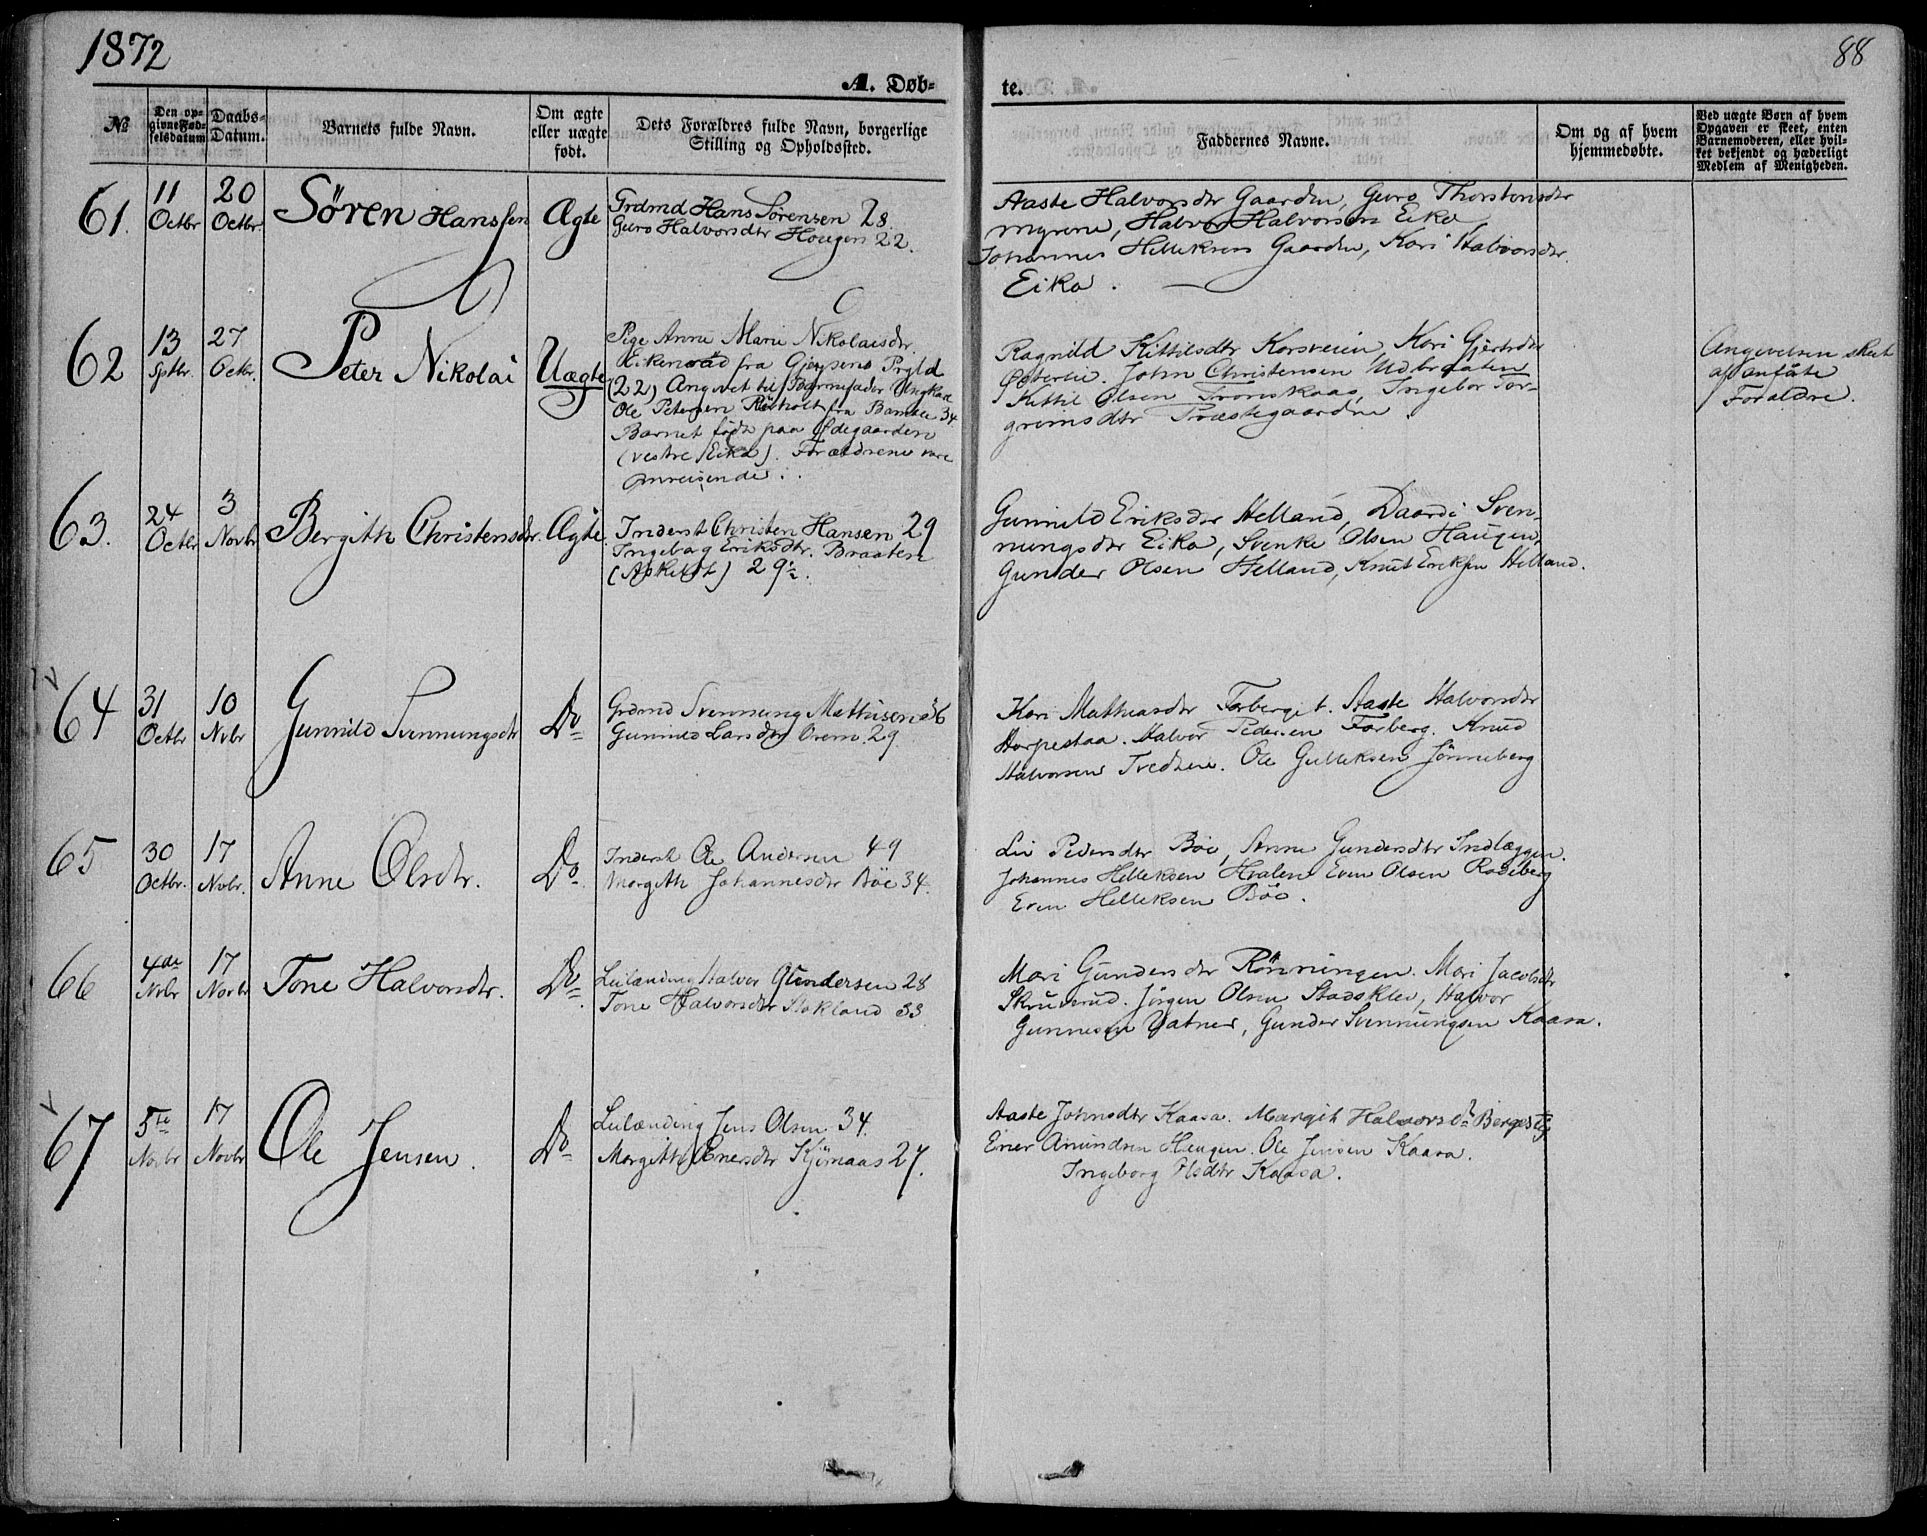 1872
88
A. Døb-
te.
No
Den op-
givne Fød-
selsdatum
Daabs-
Datum.
Barnets fulde Navn.
Om ægte
eller uægte
født.
Dets Forældres fulde Navn, borgerlige
Stilling og Opholdssted.
Faddernes Navne.
Om og af hvem
hjemmedøbte.
Ved uægte Børn af hvem
Opgaven er skeet, enten
Barnemoderen, eller hvil-
ket bekjendt og hæderligt
Medlem af Menigheden.
61.
11
Octbr
20
Octbr
Sören Hanssen
Ægte
Grdmd Hans Sörensen 28.
Guro Halvorsdtr Hougen 22.
Aaste Halvorsdtr Gaarden, Guro Thorstensdtr
myrene, Halvor Halvorsen Eika
Johannes Helleksen Gaarden, Kari Halvorsdtr.
Eika.
62
13
Sptbr.
27
Octbr.
Peter Nikolai
Uægte
Pige Anne Marie Nikolaisdr.
Eikenrød fra Gjerpens Prgld
(22) Angivet til Barnefader Ungkarl
Ole Petersen fra Bamble 34
Barnet födt paa Ødegaarden
(vestre Eika). Forældrene vare
omreisende.
Ragnild Kittilsdtr Korsveien, Kari Gjertsdtr
Øverlie. John Christensen Udbraaten
Kittil Olsen Tronskaas, Ingebor Tor-
grimsdtr Præstegaarden
Angivelsen skeet
af anförte
Forældre.
63.
24
Octbr
3
Novbr
Bergith Christensdtr.
Ægte
Inderst Christen Hansen 29
Ingebog Eriksdtr. Braaten
(Askeldt) 29½.
Gunnild Eriksdtr Helland, Daardi Sven-
nungsdtr Eika, Svenke Olsen Haugen,
Gunder Olsen Helland, Knut Eriksen Helland.
64
31
Octbr
10
Nvbr
Gunnild Svennungsdtr
Do
Grdmd Svennung Mathisen 36
Gunnild Larsdtr Orem. 29.
Kari Mathiasdtr Forberg. Aaste Halvorsdtr
Horpestaa. Halvor Pedersen Forberg. Knud
Halvorsen Tvedtene. Ole Gulliksen Jönneberg
65
30
Octbr.
17
Nvbr.
Anne Olsdtr.
Do.
Inderst Ole Andersen 49
Margith Johannesdtr Böe 34.
Liv Pedersdtr Böe, Anne Gundersdtr Indlæggen.
Johannes Helleksen Hvalen Even Olsen Roseberg
Even Helleksen Böe.
66
4de
Nvbr
17
Novbr
Tone Halvorsdtr.
Do.
Leilænding Halvor Gundersen 28
Tone Halvorsdtr Stokland 33.
Mari Gundersdtr Rönningen. Mari Jacobsdtr
Skruverud. Jörgen Olsen Stadsklev, Halvor
Gunnesen Vatner, Gunder Svennungsen Kaasa.
67
5te
Novbr
17
Novbr
Ole Jensen.
Do
Leilænding Jens Olsen 34.
Margith Enersdtr Kjömaas 27.
Aaste Johnsdtr Kaasa. Margit Halvorsdr Bergestig
Ener Amundsen Haugen. Ole Jensen Kaasa.
Ingeborg Olsdtr Kaasa.